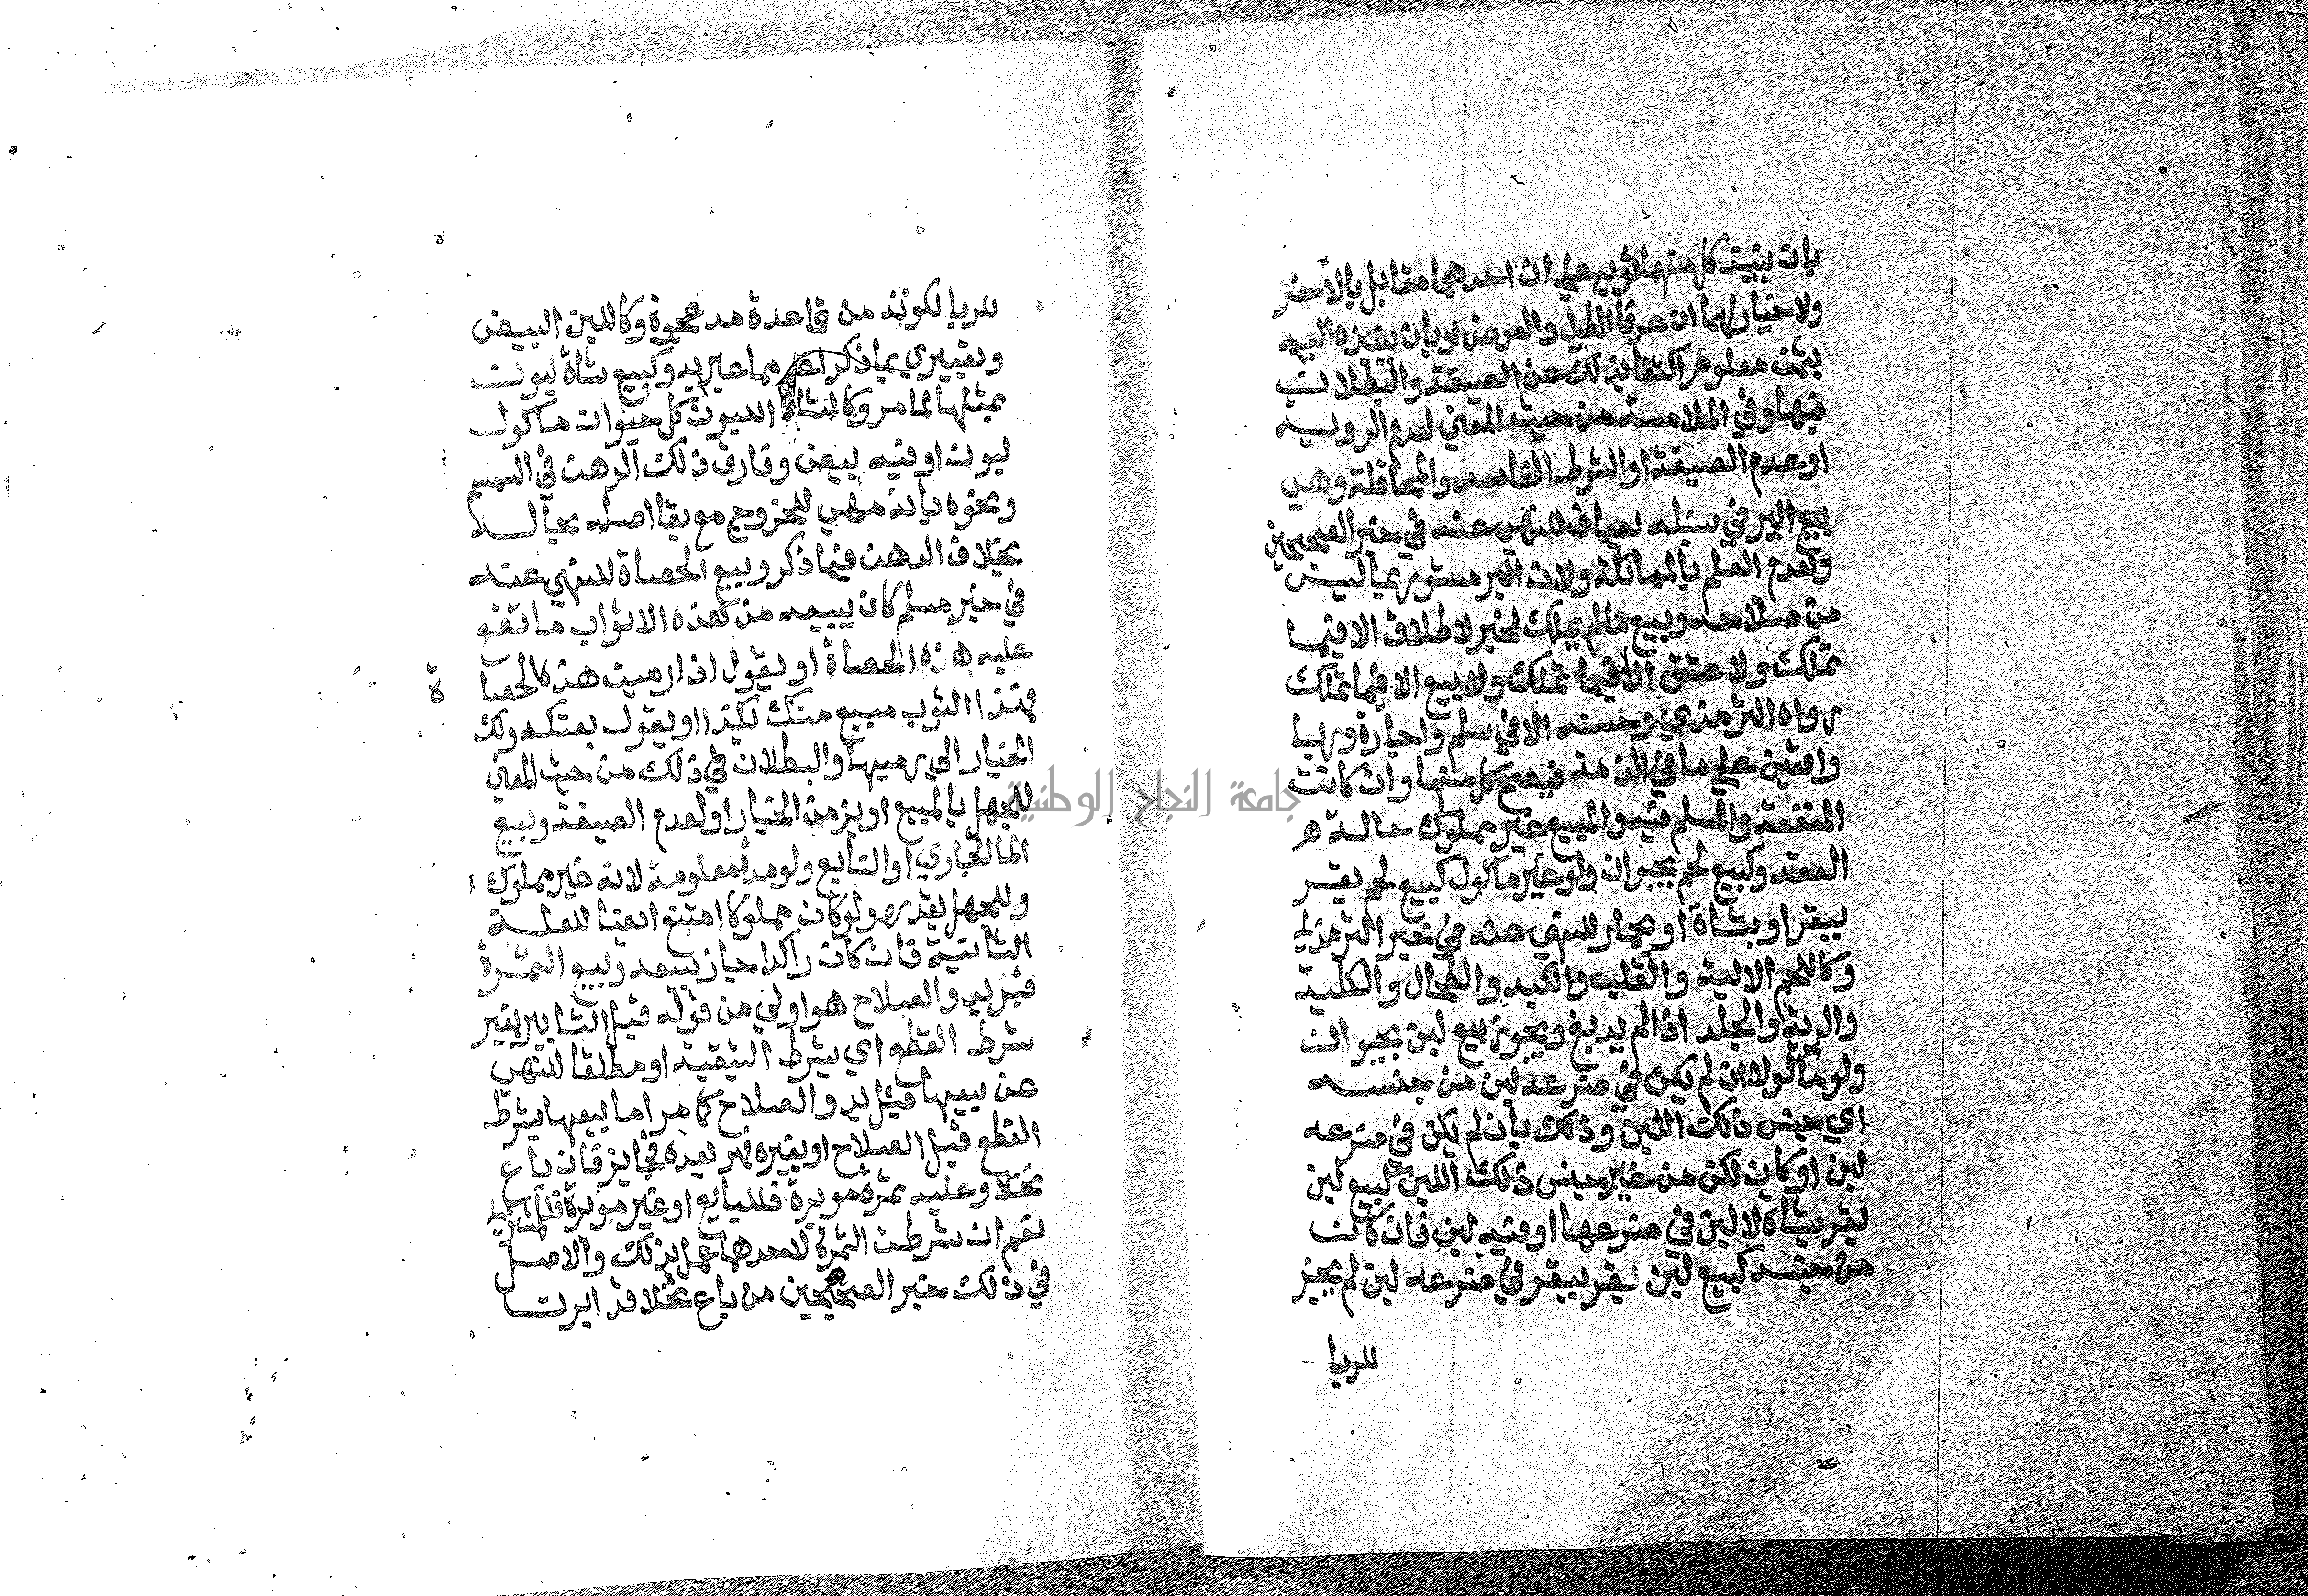 بان ينبذ كل منهما ثوبه علي ان احدهما مقابل بالاخر
ولا خيار لهما ان عرفا الطول والعرض او بان ينبذه اليه
بثمن معلوم اكتفا بذلك عن الصيغة والبطلان
فيها وفي الملامسة من حيث المعني لعدم الروية
او عدم الصيغة او الشرط الفاسد والمحاقلة وهي
بيع البر في سنبله بصاف للنهي عنه في خبر الصحيحين
ولعدم العلم بالمماثلة ولان البر مستور بما ليس
من صلاحه وبيع مالم يملك لخبر لا طلاق الا فيما
تملك ولا عتق الا فيما تملك ولا بيع الا فيما تملك
رواه الترمذي وحسنه الا في سلم واجارة وربا
واقعين علي ما في الذمة فيصح كل منها وان كانت
المنفعة والمسلم فيه والمبيع غير مملوك حالة
العقد وكبيع لحم بحيوان ولو غير ماكول كبيع لحم بقر
ببقر او بشاة او بحمار للنهي عنه في خبر الترمذي
وكاللحم الالية والقلب والكبد والطحال والكلية
والرية والجلد اذا لم يدبغ ويجوز بيع لبن بحيوان
ولو ماكولا ان لم يكن في ضرعه لبن من جنسه
اي جنس ذلك اللبن وذلك بان لم يكن في ضرعه
لبن او كان لكن من غير جنس ذلك اللبن كبيع لبن
بقر بشاة لا لبن في ضرعها او فيه لبن فان كانت
من جنسه كبيع لبن بقر ببقر في ضرعه لبن لم يجز
للربا
للربا لكونه من قاعدة مد عجوة وكاللبن البيض
وتعبيري بما ذكر اعم مما عبر به وكبيع شاة لبون
بمثلها لما مر وكالشاة اللبون كل حيوان ماكول
لبون او فيه بيض وفارق ذلك الدهن في السمسم
ونحوه بانه مهيي للخروج مع بقا اصله بحاله
بخلاف الدهن فيما ذكر وبيع الحصاة للنهي عنه
في خبر مسلم كان يبيعه من هذه الاثواب ما تقع
عليه هذه الحصاة او يقول اذا رميت هذه الحصاة
فهذا الثوب مبيع منك بكذا او يقول بعتكه ولك
الخيار الي رميها والبطلان في ذلك من حيث المعني
للجهل بالمبيع او بزمن الخيار او لعدم الصيغة وبيع
الما الجاري او التابع ولو مدة معلومة لانه غير مملوك
وللجهل بقدره ولو كان مملوكا امتنع ايضا للعلة
الثانية فان كان راكدا جاز بيعه وبيع الثمرة
قبل بدو الصلاح هو اولي من قوله قبل التابير بغير
شرط القطع اي بشرط التبقية او مطلقا للنهي
عن بيعها قبل بدو الصلاح كما مر اما بيعها بشرط
القطع قبل الصلاح او بغيره بعده فجايز فان باع
نخلا وعليه ثمرة موبرة فللبايع او غير موبرة فللمشتري
نعم ان شرطت الثمرة لاحدهما عمل بذلك والاصل
في ذلك خبر الصحيحين من باع نخلا قد ابرت
جامعة النجاح الوطنية